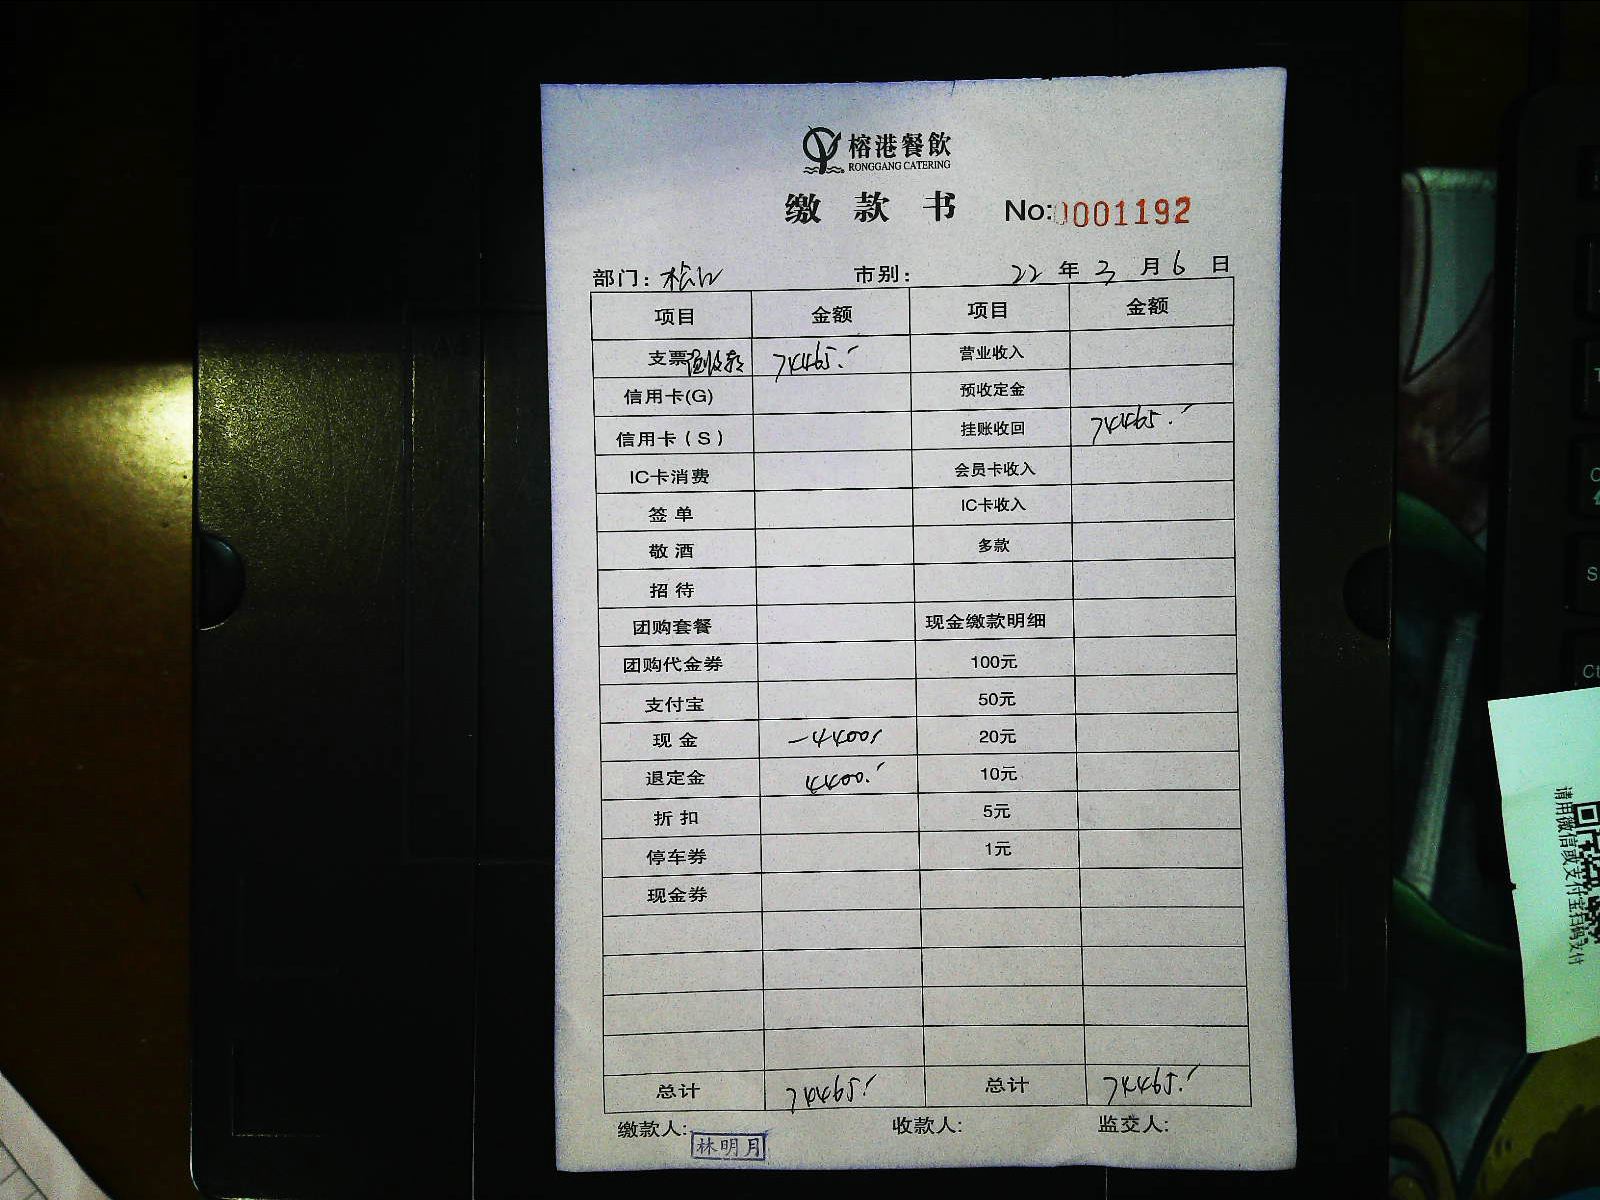 榕港餐飲
RONGGANG CATERING
缴 款 书 No:0001192
部门: 松江 市别: 22 年 3 月 6 日
项目 金额 项目 金额
支票 74465.- 营业收入
信用卡(G) 预收定金
信用卡(S) 挂账收回 74465.-
IC卡消费 会员卡收入
签单 IC卡收入
敬酒 多款
招待
团购套餐 现金缴款明细
团购代金券 100元
支付宝 50元
现金 -4400.- 20元
退定金 4400.- 10元
折扣 5元
停车券 1元
现金券
总计 74465.- 总计 74465.-
缴款人: 林明月 收款人: 监交人:
请用微信或支付宝扫码支付